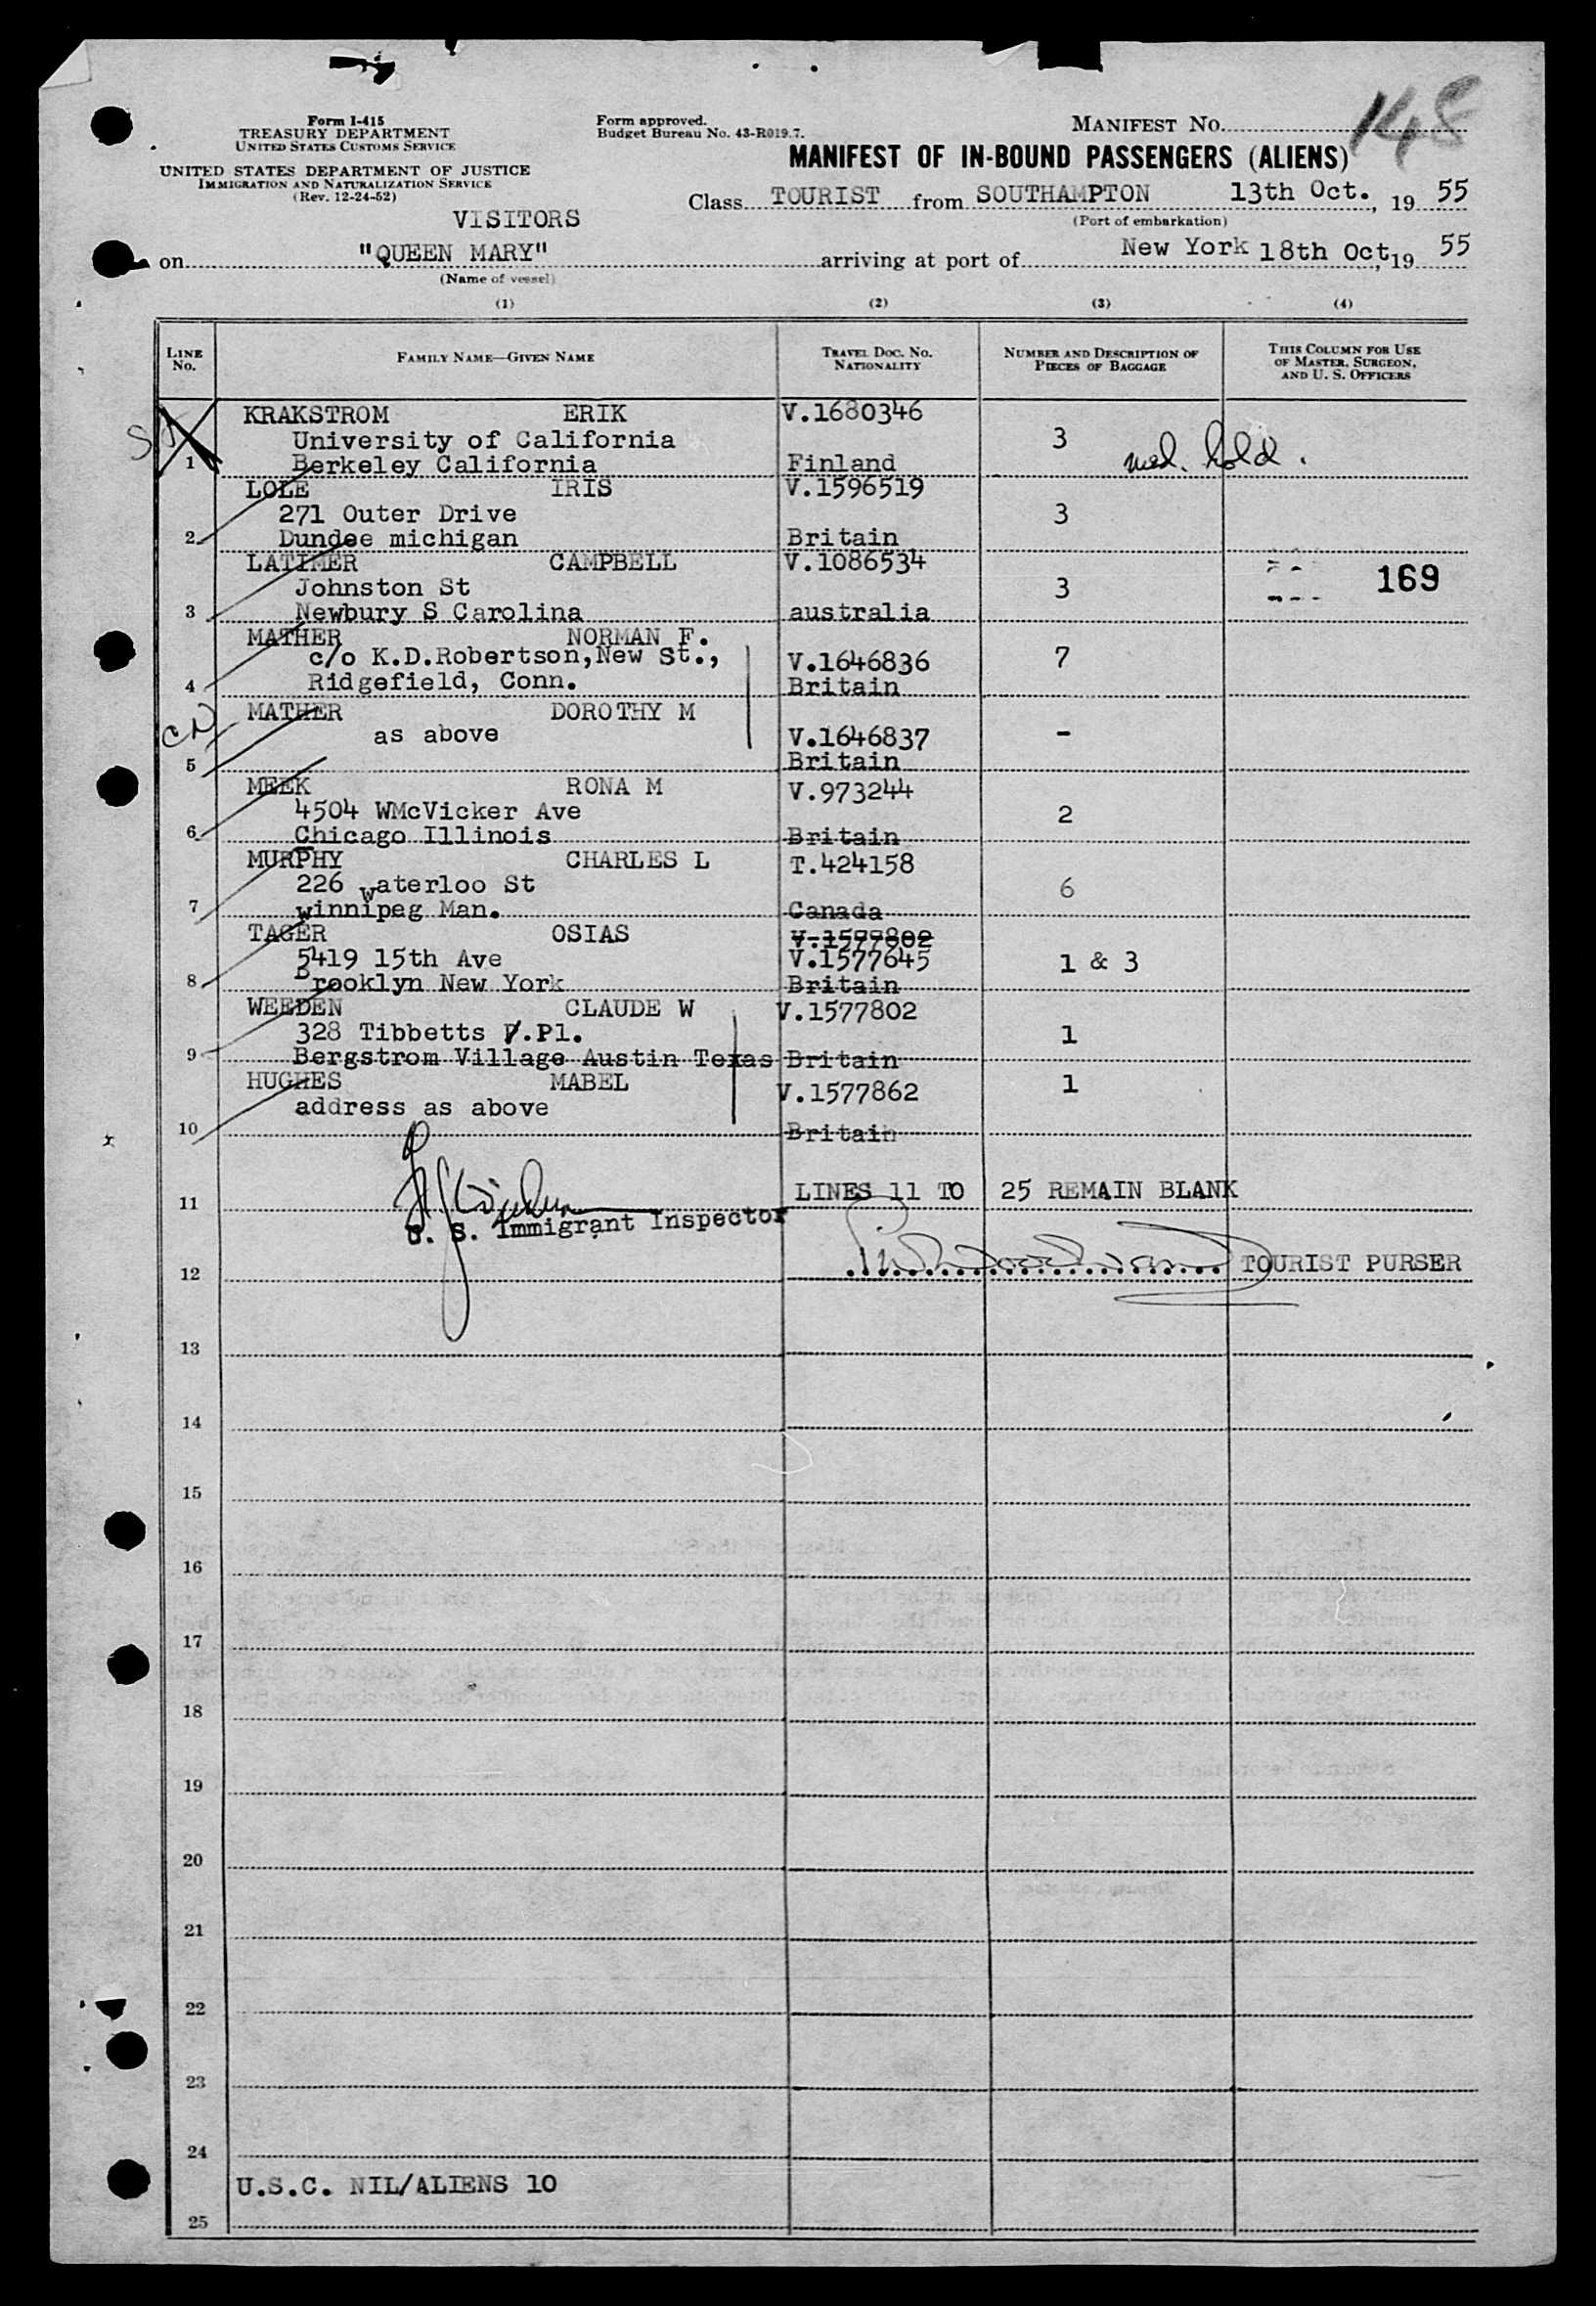 148
Form I-415
TREASURY DEPARTMENT
UNITED STATES CUSTOMS SERVICE
UNITED STATES DEPARTMENT OF JUSTICE
IMMIGRATION AND NATURALIZATION SERVICE
(Rev. 12-24-52)
Form approved.
Budget Bureau No. 43-R019.7.
MANIFEST NO.
MANIFEST OF IN-BOUND PASSENGERS (ALIENS)
VISITORS
Class TOURIST from SOUTHAMPTON 13th Oct., 19 55
(Port of embarkation)
on "QUEEN MARY" arriving at port of New York 18th Oct, 19 55
(Name of vessel)
(1) (2) (3) (4)
LINE NO.
FAMILY NAME—GIVEN NAME
TRAVEL DOC. NO. NATIONALITY
NUMBER AND DESCRIPTION OF PIECES OF BAGGAGE
THIS COLUMN FOR USE OF MASTER, SURGEON, AND U. S. OFFICERS
KRAKSTROM ERIK V.1680346
University of California 3 med. hold.
1 Berkeley California Finland
LOLE IRIS V.1596519
271 Outer Drive 3
2 Dundee michigan Britain
LATIMER CAMPBELL V.1086534
Johnston St 3 169
3 Newbury S Carolina australia
MATHER NORMAN F.
c/o K.D.Robertson,New St., V.1646836 7
4 Ridgefield, Conn. Britain
CN MATHER DOROTHY M
as above V.1646837 -
5 Britain
MEEK RONA M V.973244
4504 WMcVicker Ave 2
6 Chicago Illinois Britain
MURPHY CHARLES L T.424158
226 waterloo St 6
7 winnipeg Man. Canada
TAGER OSIAS V.1577802
5419 15th Ave V.1577645 1 & 3
8 Brooklyn New York Britain
WEEDEN CLAUDE W V.1577802
328 Tibbetts P.Pl. 1
9 Bergstrom Village Austin Texas Britain
HUGHES MABEL V.1577862 1
address as above
10 Britain
11 LINES 11 TO 25 REMAIN BLANK
U. S. Immigrant Inspector
12 TOURIST PURSER
13
14
15
16
17
18
19
20
21
22
23
24
U.S.C. NIL/ALIENS 10
25